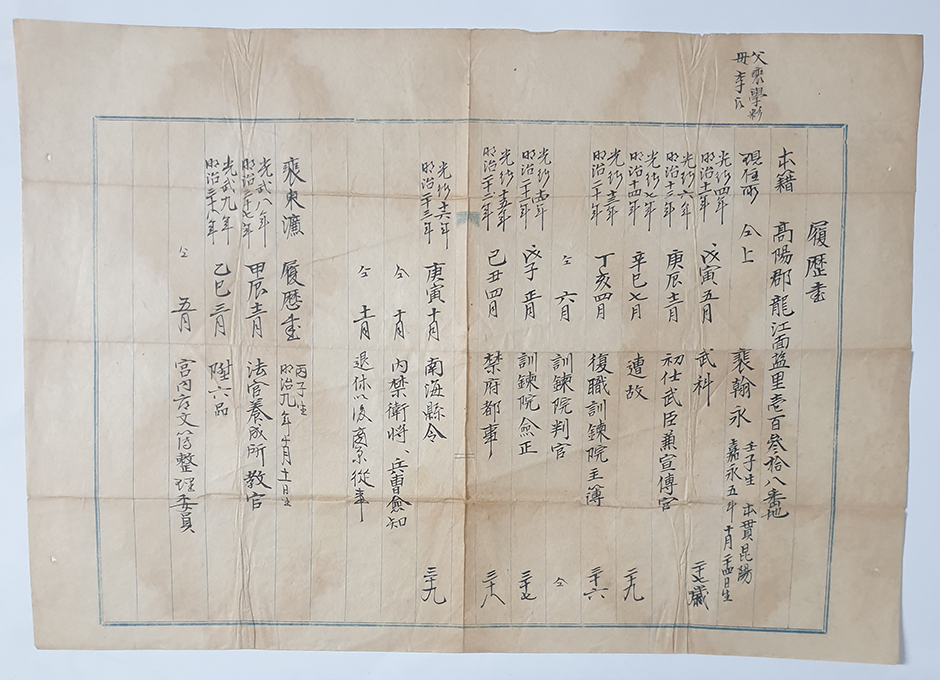 父裵學
母李氏
履歷書
本籍 高陽郡龍江面 里壹百參拾八番地
現住所 仝上 裵翰永 壬子生 本貫昆陽
嘉永五年十月二十四日生
光緖四年
明治十一年 戊寅五月 武科 二十七歲
光緖六年
明治十三年 庚辰十二月 初仕武臣兼宣傳官
光緖七年
明治十四年 辛巳七月 遭故 二十九
光緖十三年
明治二十年 丁亥四月 復職訓鍊院主簿 三十六
仝 六月 訓鍊院判官 仝
光緖十四年
明治二十一年 戊子正月 訓鍊院僉正 三十七
光緖十五年
明治二十二年 己丑四月 禁府都事 三十八
光緖十六年
明治二十三年 庚寅十月 南海縣令 三十九
仝 十月 內禁衛將、兵曹僉知
仝 十二月 退休以後農業從事
裵東瀗 履歷書 丙子生
明治九年十一月十一日生
光武八年
明治三十七年 甲辰十二月 法官養成所敎官
光武九年
明治三十八年 乙巳三月 陞六品
仝 五月 宮內府文簿整理委員